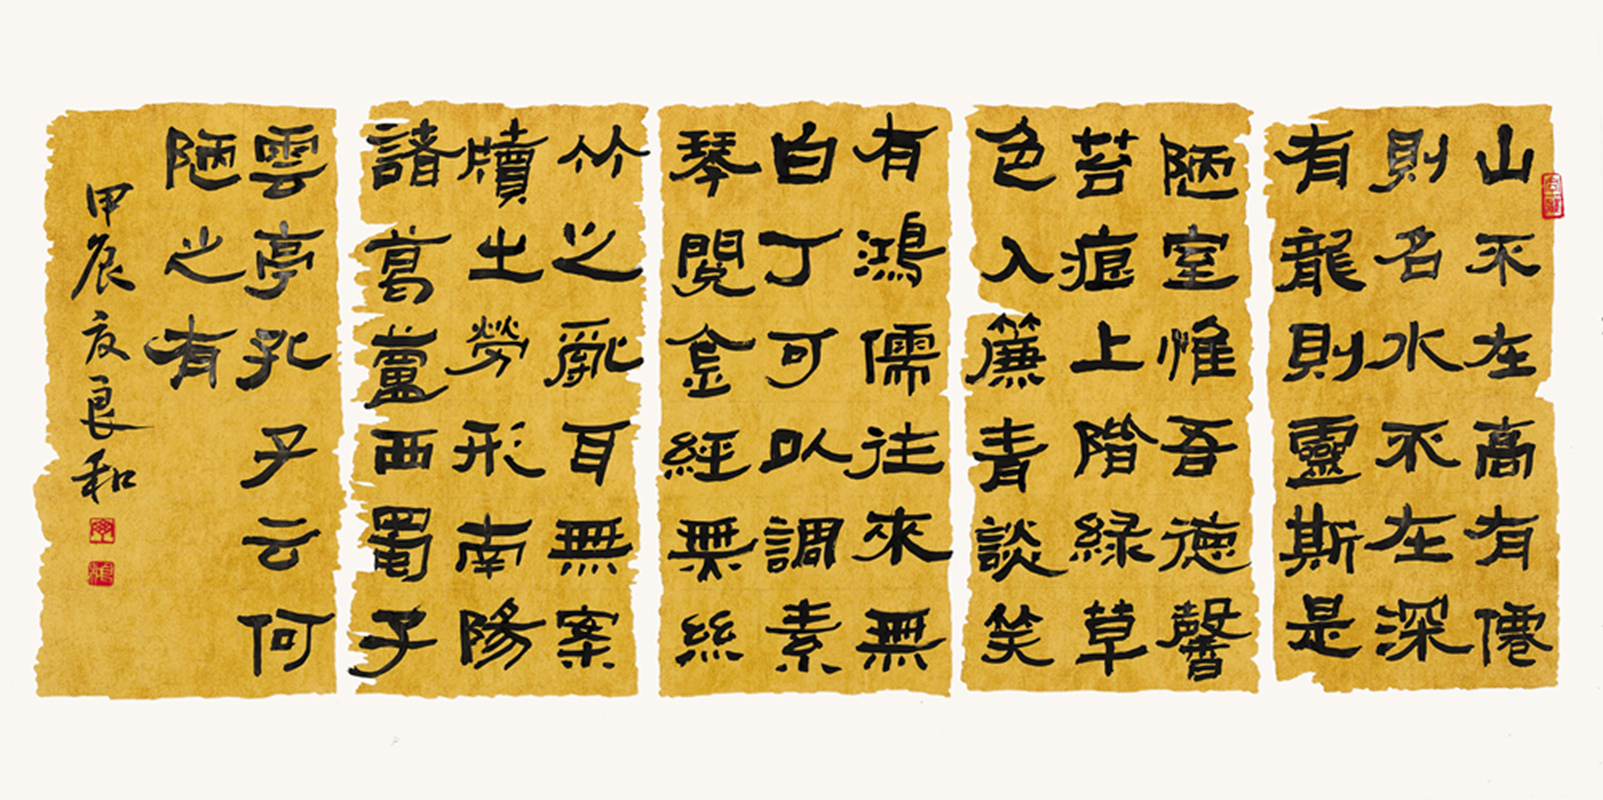 山不在高有僊
則名水不在深
有龍則靈斯是
陋室惟吾德馨
苔痕上階綠草
色入簾青談笑
有鴻儒往來無
白丁可以調素
琴閱金經無絲
竹之亂耳無案
牘之勞形南陽
諸葛蘆西蜀子
雲亭孔子云何
陋之有
甲辰友良和